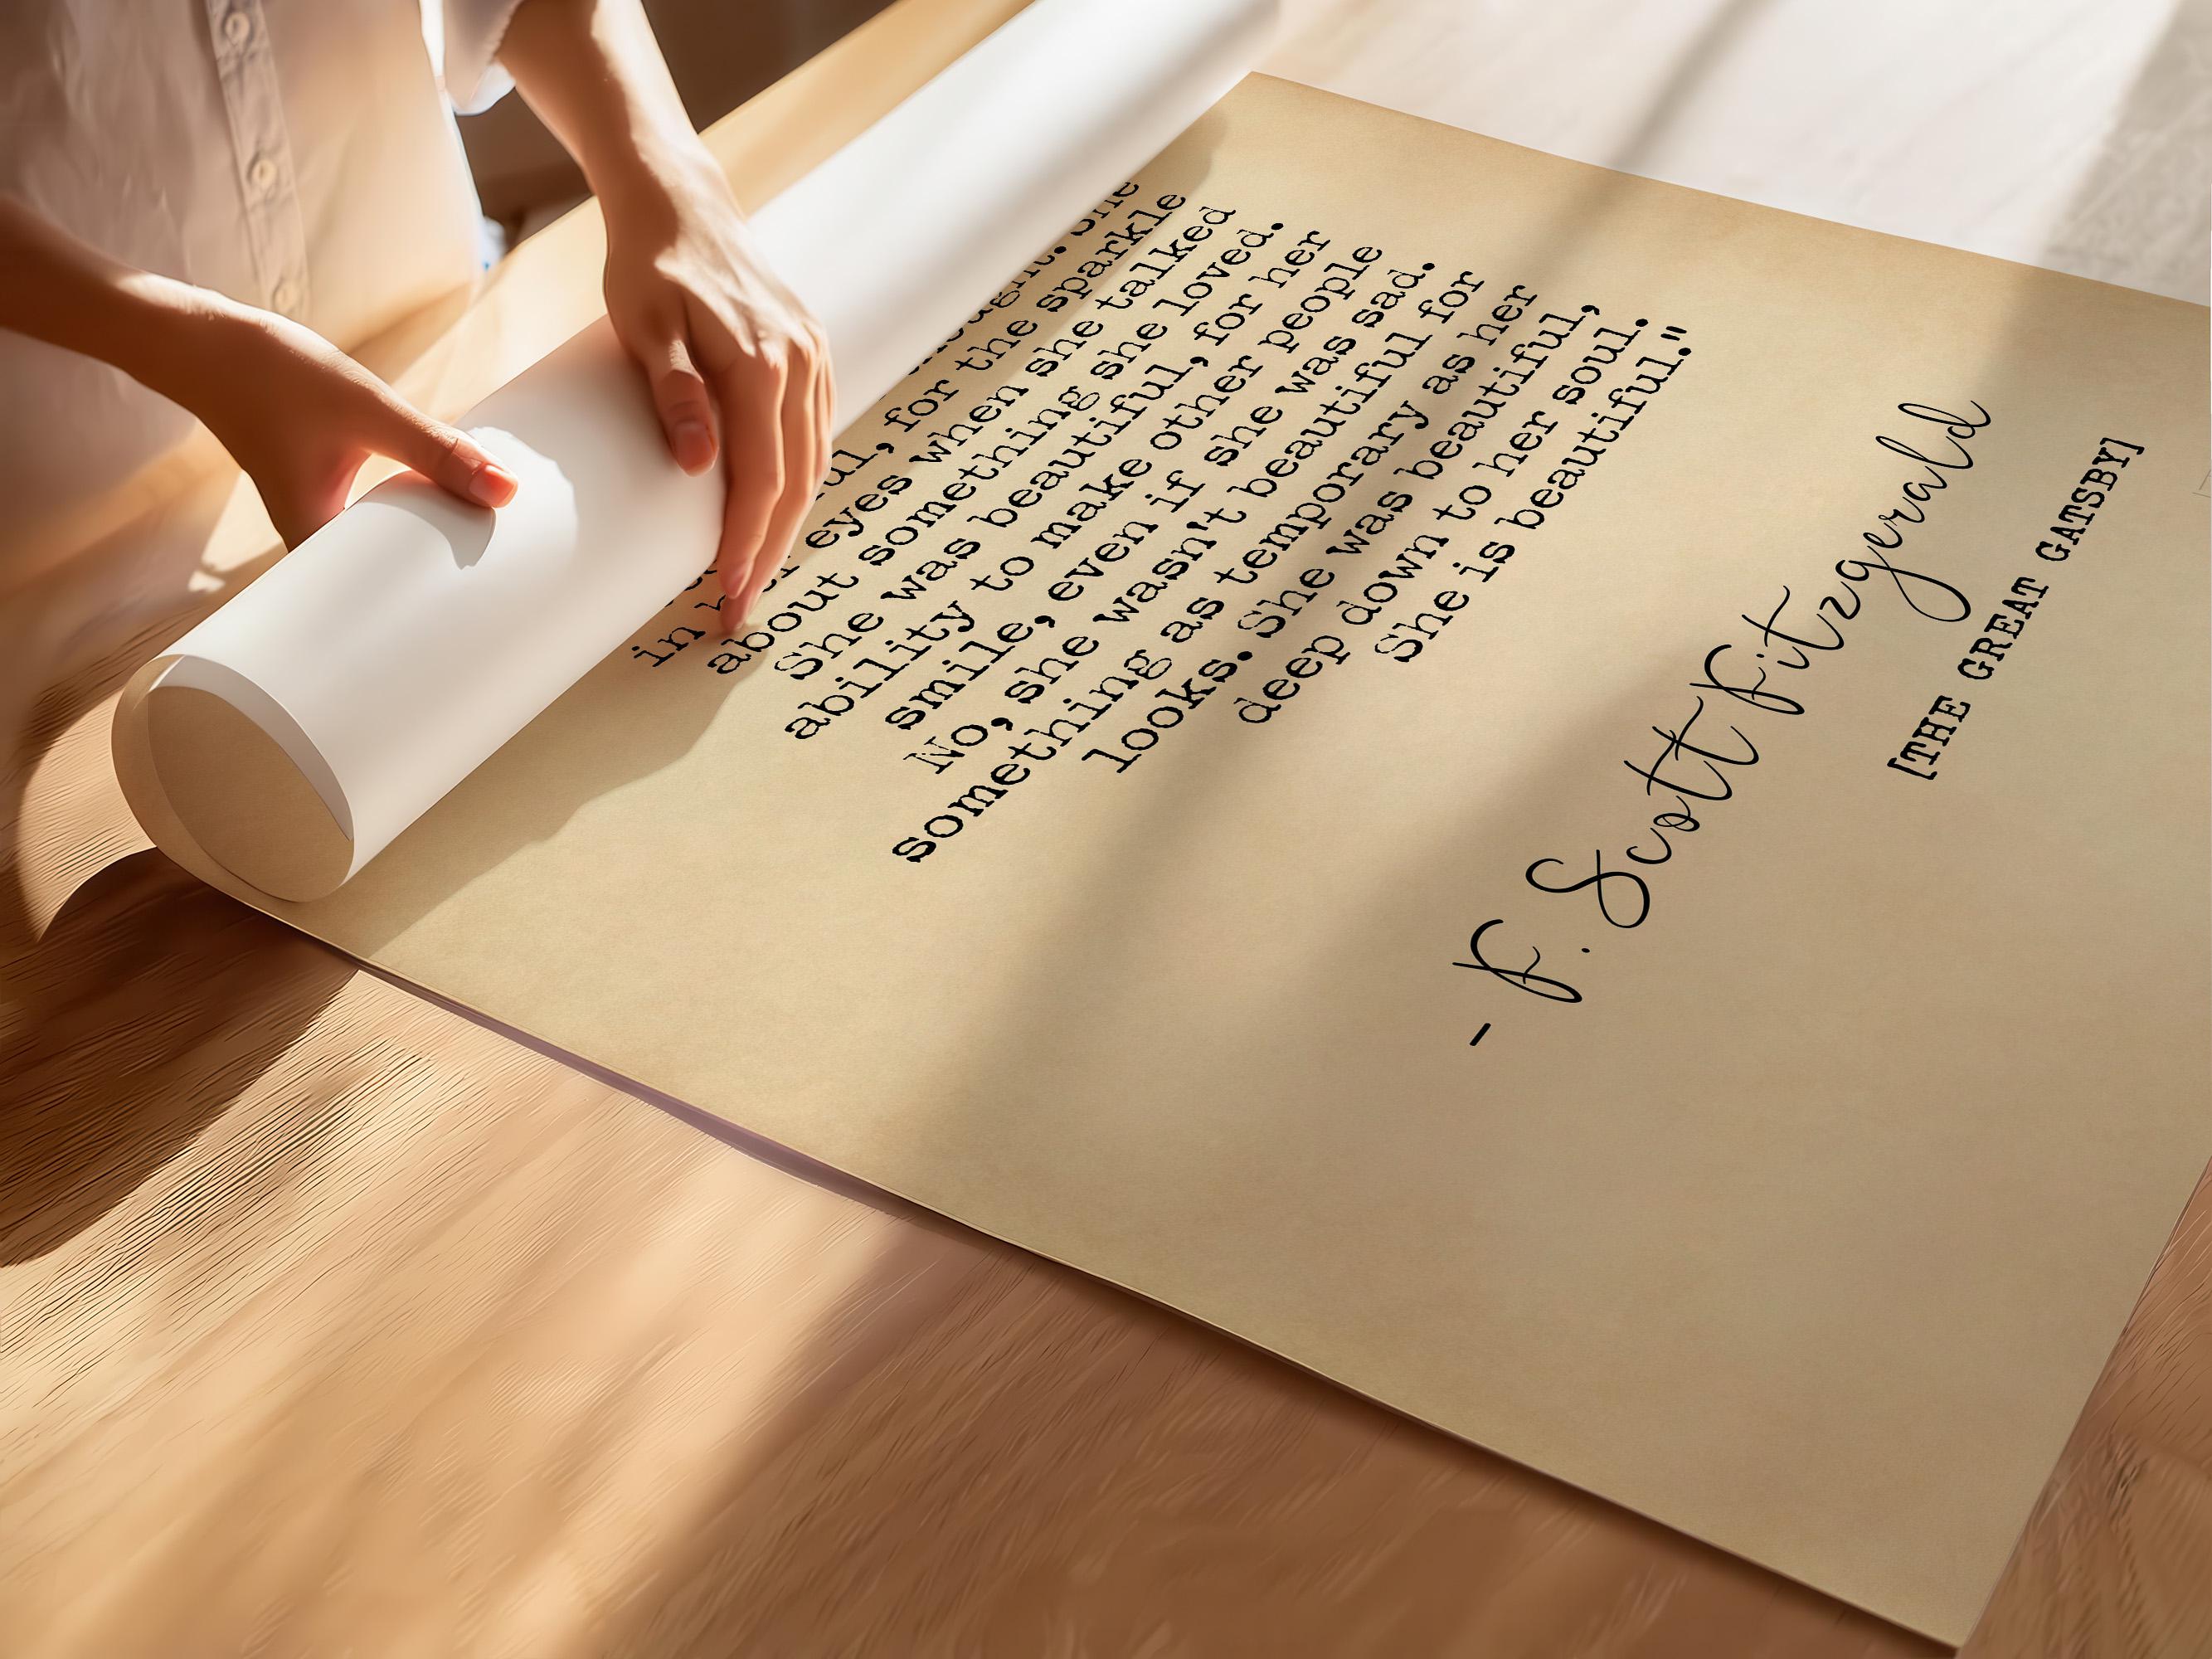 for the sparkle
in her eyes when she talked
about something she loved.
She was beautiful, for her
ability to make other people
smile, even if she was sad.
No, she wasn't beautiful for
something as temporary as her
looks. She was beautiful,
deep down to her soul.
She is beautiful."
- F. Scott Fitzgerald
[THE GREAT GATSBY]